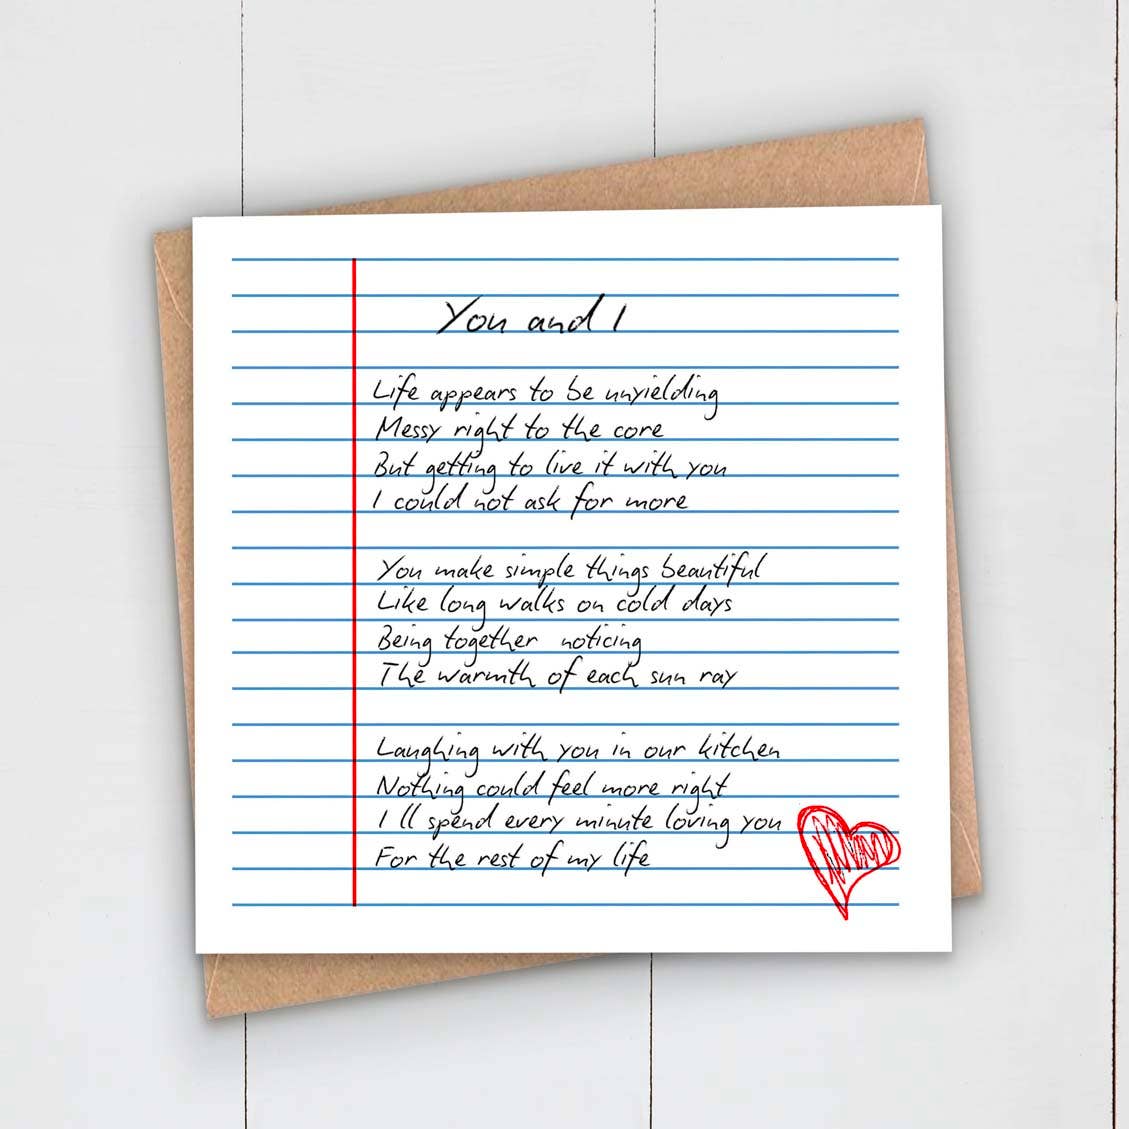 You and I
Life appears to be unyielding
Messy right to the core
But getting to live it with you
I could not ask for more
You make simple things beautiful
Like long walks on cold days
Being together noticing
The warmth of each sun ray
Laughing with you in our kitchen
Nothing could feel more right
I ll spend every minute loving you
For the rest of my life